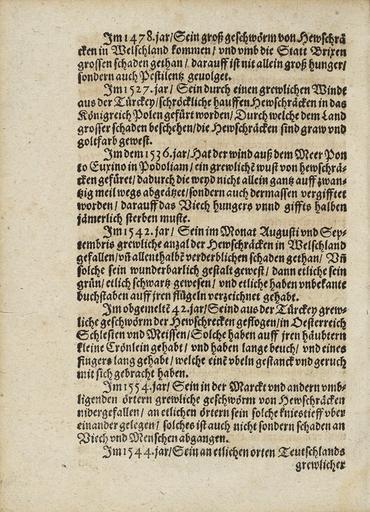 Im 1478. jar/ Sein groß geschwörm von Hewschrä
cken in Welschland kommen/ vnd vmb die Statt Brixen
grossen schaden gethan/ darauff ist nit allein groß hunger/
sondern auch Pestilentz geuolget.
Im 1527. jar/ Sein durch einen grewlichen Winde
aus der Türckey/ schröckliche hauffen Hewschräcken in das
Königreich Polen gefürt worden/ Durch welche dem Land
grosser schaden beschehen/ die Hewschräcken sind graw vnd
goltfarb gewest.
Im dem 1536. jar/ Hat der wind auß dem Meer Pon
to Euxino in Podoliam/ ein grewlich wust von hewschrä-
cken gefüret/ dadurch die weyd nicht allein gantz auff zwan-
tzig meil wegs abgeätzet/ sondern auch dermassen vergifftet
worden/ darauff das Viech hungers vnnd giffts halben
jämerlich sterben muste.
Im 1542. jar/ Sein im Monat Augusti vnd Sep-
tembris grewliche anzal der Hewschräcken in Welschland
gefallen/ vñ allenthalbē verderblichen schaden gethan/ Vñ
solche sein wunderbarlich gestalt gewest/ dann etliche sein
grün/ etlich schwartz gewesen/ vnd etliche haben vnbekante
buchstaben auff jren flügeln verzeichnet gehabt.
Im obgemelte 42. jar/ Seind aus der Türckey grew-
liche geschwörm der Hewschrecken geflogen/ in Oesterreich
Schlesien vnd Meissen/ Solche haben auff jren häubtern
kleine Crönlein gehabt/ vnd haben lange beuch/ vnd eines
fingers lang gehabt/ welche einē vbeln gestanck vnd geruch
mit sich gebracht haben.
Im 1554. jar/ Sein in der Marckt vnd andern vmb-
ligenden örtern grewliche geschwörm von Hewschräcken
nidergefallen/ an etlichen örtern sein solche kniestieff vber
einander gelegen/ solches ist auch nicht sondern schaden an
Viech vnd Menschen abgangen.
Im 1544. jar/ Sein an etlichen orten Teutschlands
grewlicher